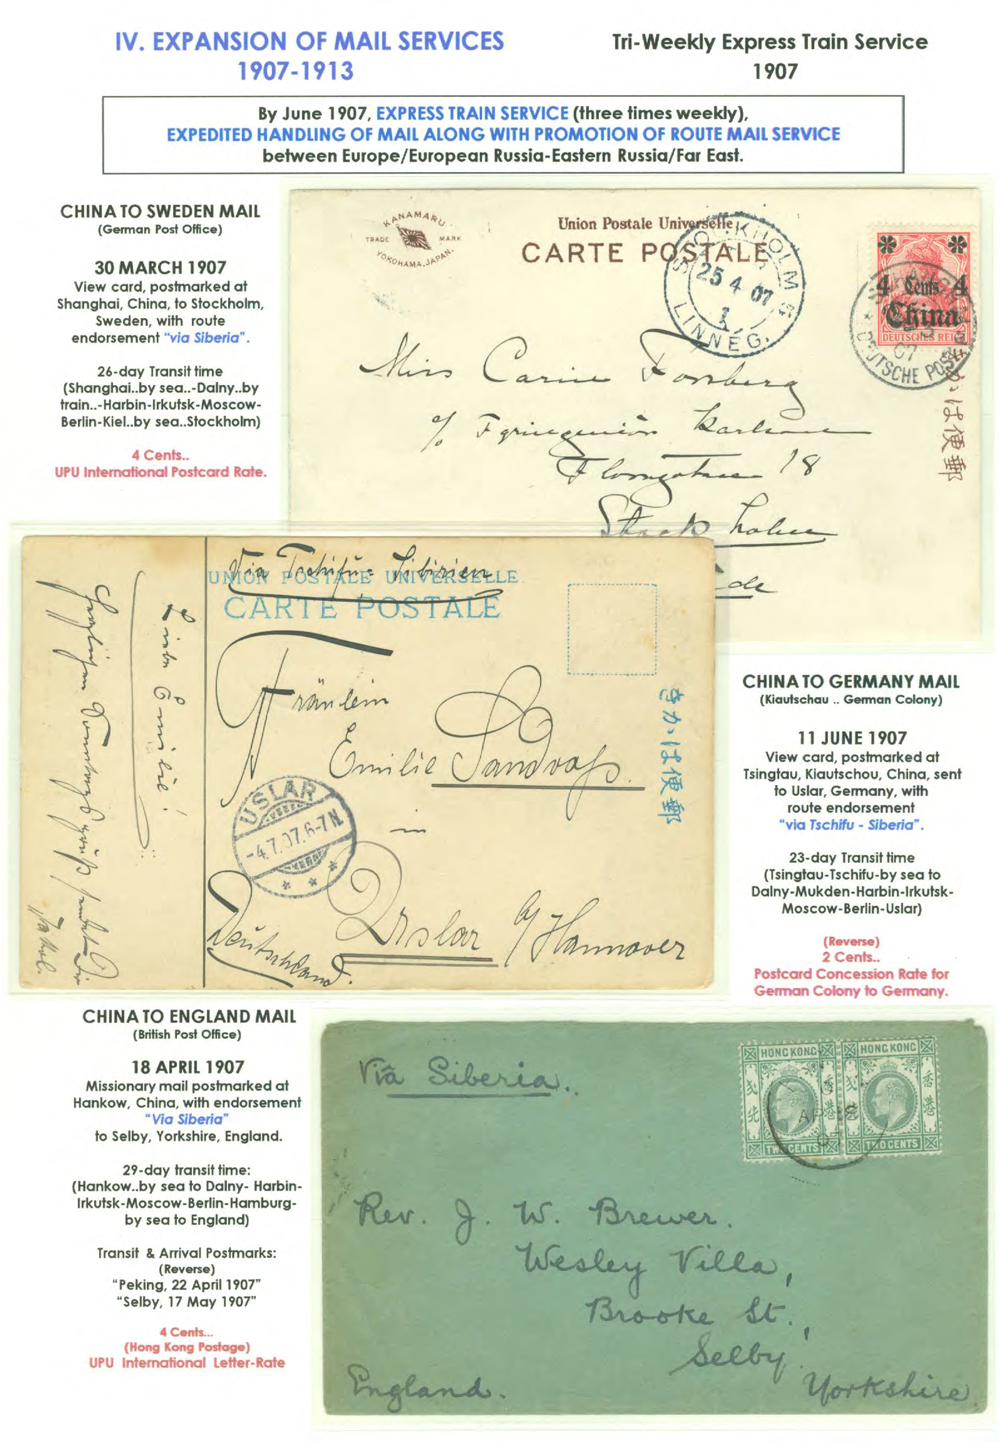 IV. EXPANSION OF MAIL SERVICES
1907-1913
Tri-Weekly Express Train Service
1907
By June 1907, EXPRESS TRAIN SERVICE (three times weekly),
EXPEDITED HANDLING OF MAIL ALONG WITH PROMOTION OF ROUTE MAIL SERVICE
between Europe/European Russia-Eastern Russia/Far East.
CHINA TO SWEDEN MAIL
(German Post Office)
30 MARCH 1907
View card, postmarked at
Shanghai, China, to Stockholm,
Sweden, with route
endorsement "via Siberia".
26-day Transit time
(Shanghai..by sea..-Dalny..by
train..-Harbin-Irkutsk-Moscow-
Berlin-Kiel..by sea..Stockholm)
4 Cents..
UPU International Postcard Rate.
KANAMARU
TRADE MARK
YOKOHAMA, JAPAN.
Union Postale Universelle
CARTE POSTALE
STOCKHOLM 5
25 4 07
LINNÉG.
4 Cents 4
China
DEUTSCHES REICH
07
DEUTSCHE POST
きかは便郵
Miss Carin Forsberg
18
Stockholm
UNION POSTALE UNIVERSELLE
CARTE POSTALE
Via Tschifu - Sibirien
Fräulein
Emilie Sandvoss.
in
Uslar b/Hannover
Deutschland.
USLAR
-4.7.07.6-7N.
きかは便郵
CHINA TO GERMANY MAIL
(Kiautschau .. German Colony)
11 JUNE 1907
View card, postmarked at
Tsingtau, Kiautschou, China, sent
to Uslar, Germany, with
route endorsement
"via Tschifu - Siberia".
23-day Transit time
(Tsingtau-Tschifu-by sea to
Dalny-Mukden-Harbin-Irkutsk-
Moscow-Berlin-Uslar)
(Reverse)
2 Cents..
Postcard Concession Rate for
German Colony to Germany.
CHINA TO ENGLAND MAIL
(British Post Office)
18 APRIL 1907
Missionary mail postmarked at
Hankow, China, with endorsement
"Via Siberia"
to Selby, Yorkshire, England.
29-day transit time:
(Hankow..by sea to Dalny- Harbin-
Irkutsk-Moscow-Berlin-Hamburg-
by sea to England)
Transit & Arrival Postmarks:
(Reverse)
"Peking, 22 April 1907"
"Selby, 17 May 1907"
4 Cents...
(Hong Kong Postage)
UPU International Letter-Rate
Via Siberia.
HONG KONG
TWO CENTS
HONG KONG
TWO CENTS
AP 18
07
Rev. J. W. Brewer.
Wesley Villa,
Brooke St.,
Selby.
England.
Yorkshire